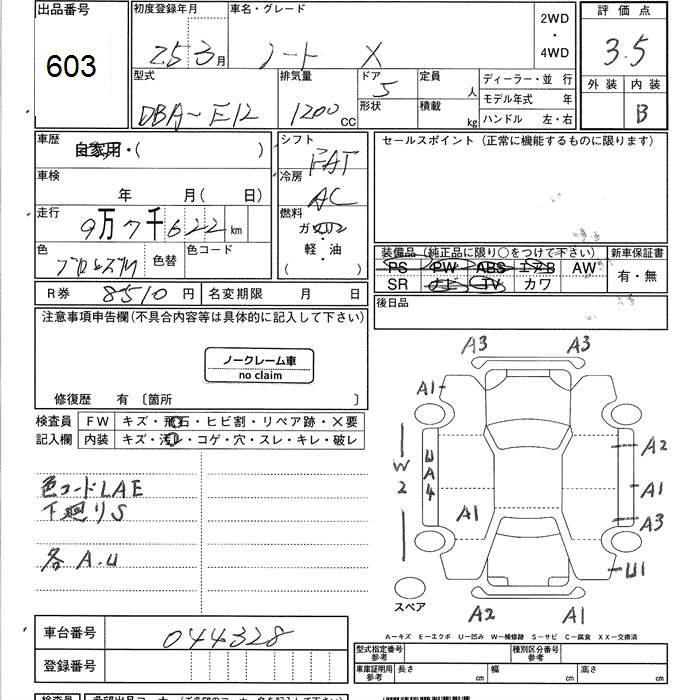 出品番号
603
初度登録年月 25 3月
車名・グレード
ノート X
2WD
・
4WD
評価点
3.5
外装 内装
B
型式
DBA-E12
排気量
1200 CC
ドア
5
形状
定員 人
積載 kg
ディーラー・並行
モデル年式 年
ハンドル 左・右
車歴
自家用・( )
車検
年 月( 日)
走行
9万7千622 km
色
色替
色コード
シフト
FAT
冷房
AC
燃料
ガソリン
・
軽・油
( )
セールスポイント(正常に機能するものに限ります)
装備品(純正品に限り〇をつけて下さい)
PS PW ABS エアB AW
SR ナビ TV カワ
新車保証書
有・無
R券 8510円
名変期限 月 日
後日品
注意事項申告欄(不具合内容等は具体的に記入して下さい)
ノークレーム車
no claim
修復歴 有〔箇所 〕
検査員
記入欄
FW キズ・飛石・ヒビ割・リペア跡・X要
内装 キズ・汚レ・コゲ・穴・スレ・キレ・破レ
色コードLAE
下廻りS
各A.U
A3 A3
A1
A2
W2
UA4
A1
A1
A3
U1
スペア
A2 A1
A-キズ E-エクボ U-凹み W-補修跡 S-サビ C-腐食 XX-交換済
車台番号 044328
登録番号
型式指定番号
参考
種別区分番号
参考
車庫証明用
参考
長さ cm
幅 cm
高さ cm